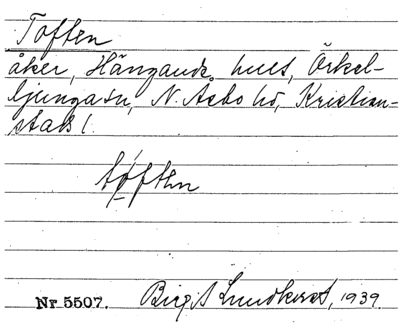 Toften
åker, Hängande hult, Örkel-
ljunga sn, N. Åsbo hd, Kristian-
stads l.
tɸften
Nr 5507. Birgit Lundkvist, 1939.